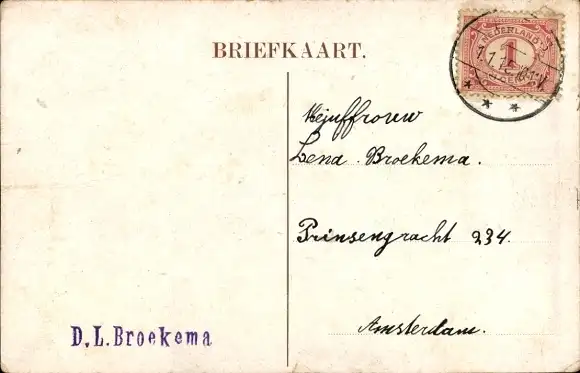 BRIEFKAART.
NEDERLAND
1
Mejuffrouw
Lena Broekema.
Prinsengracht 234.
Amsterdam.
D. L. Broekema